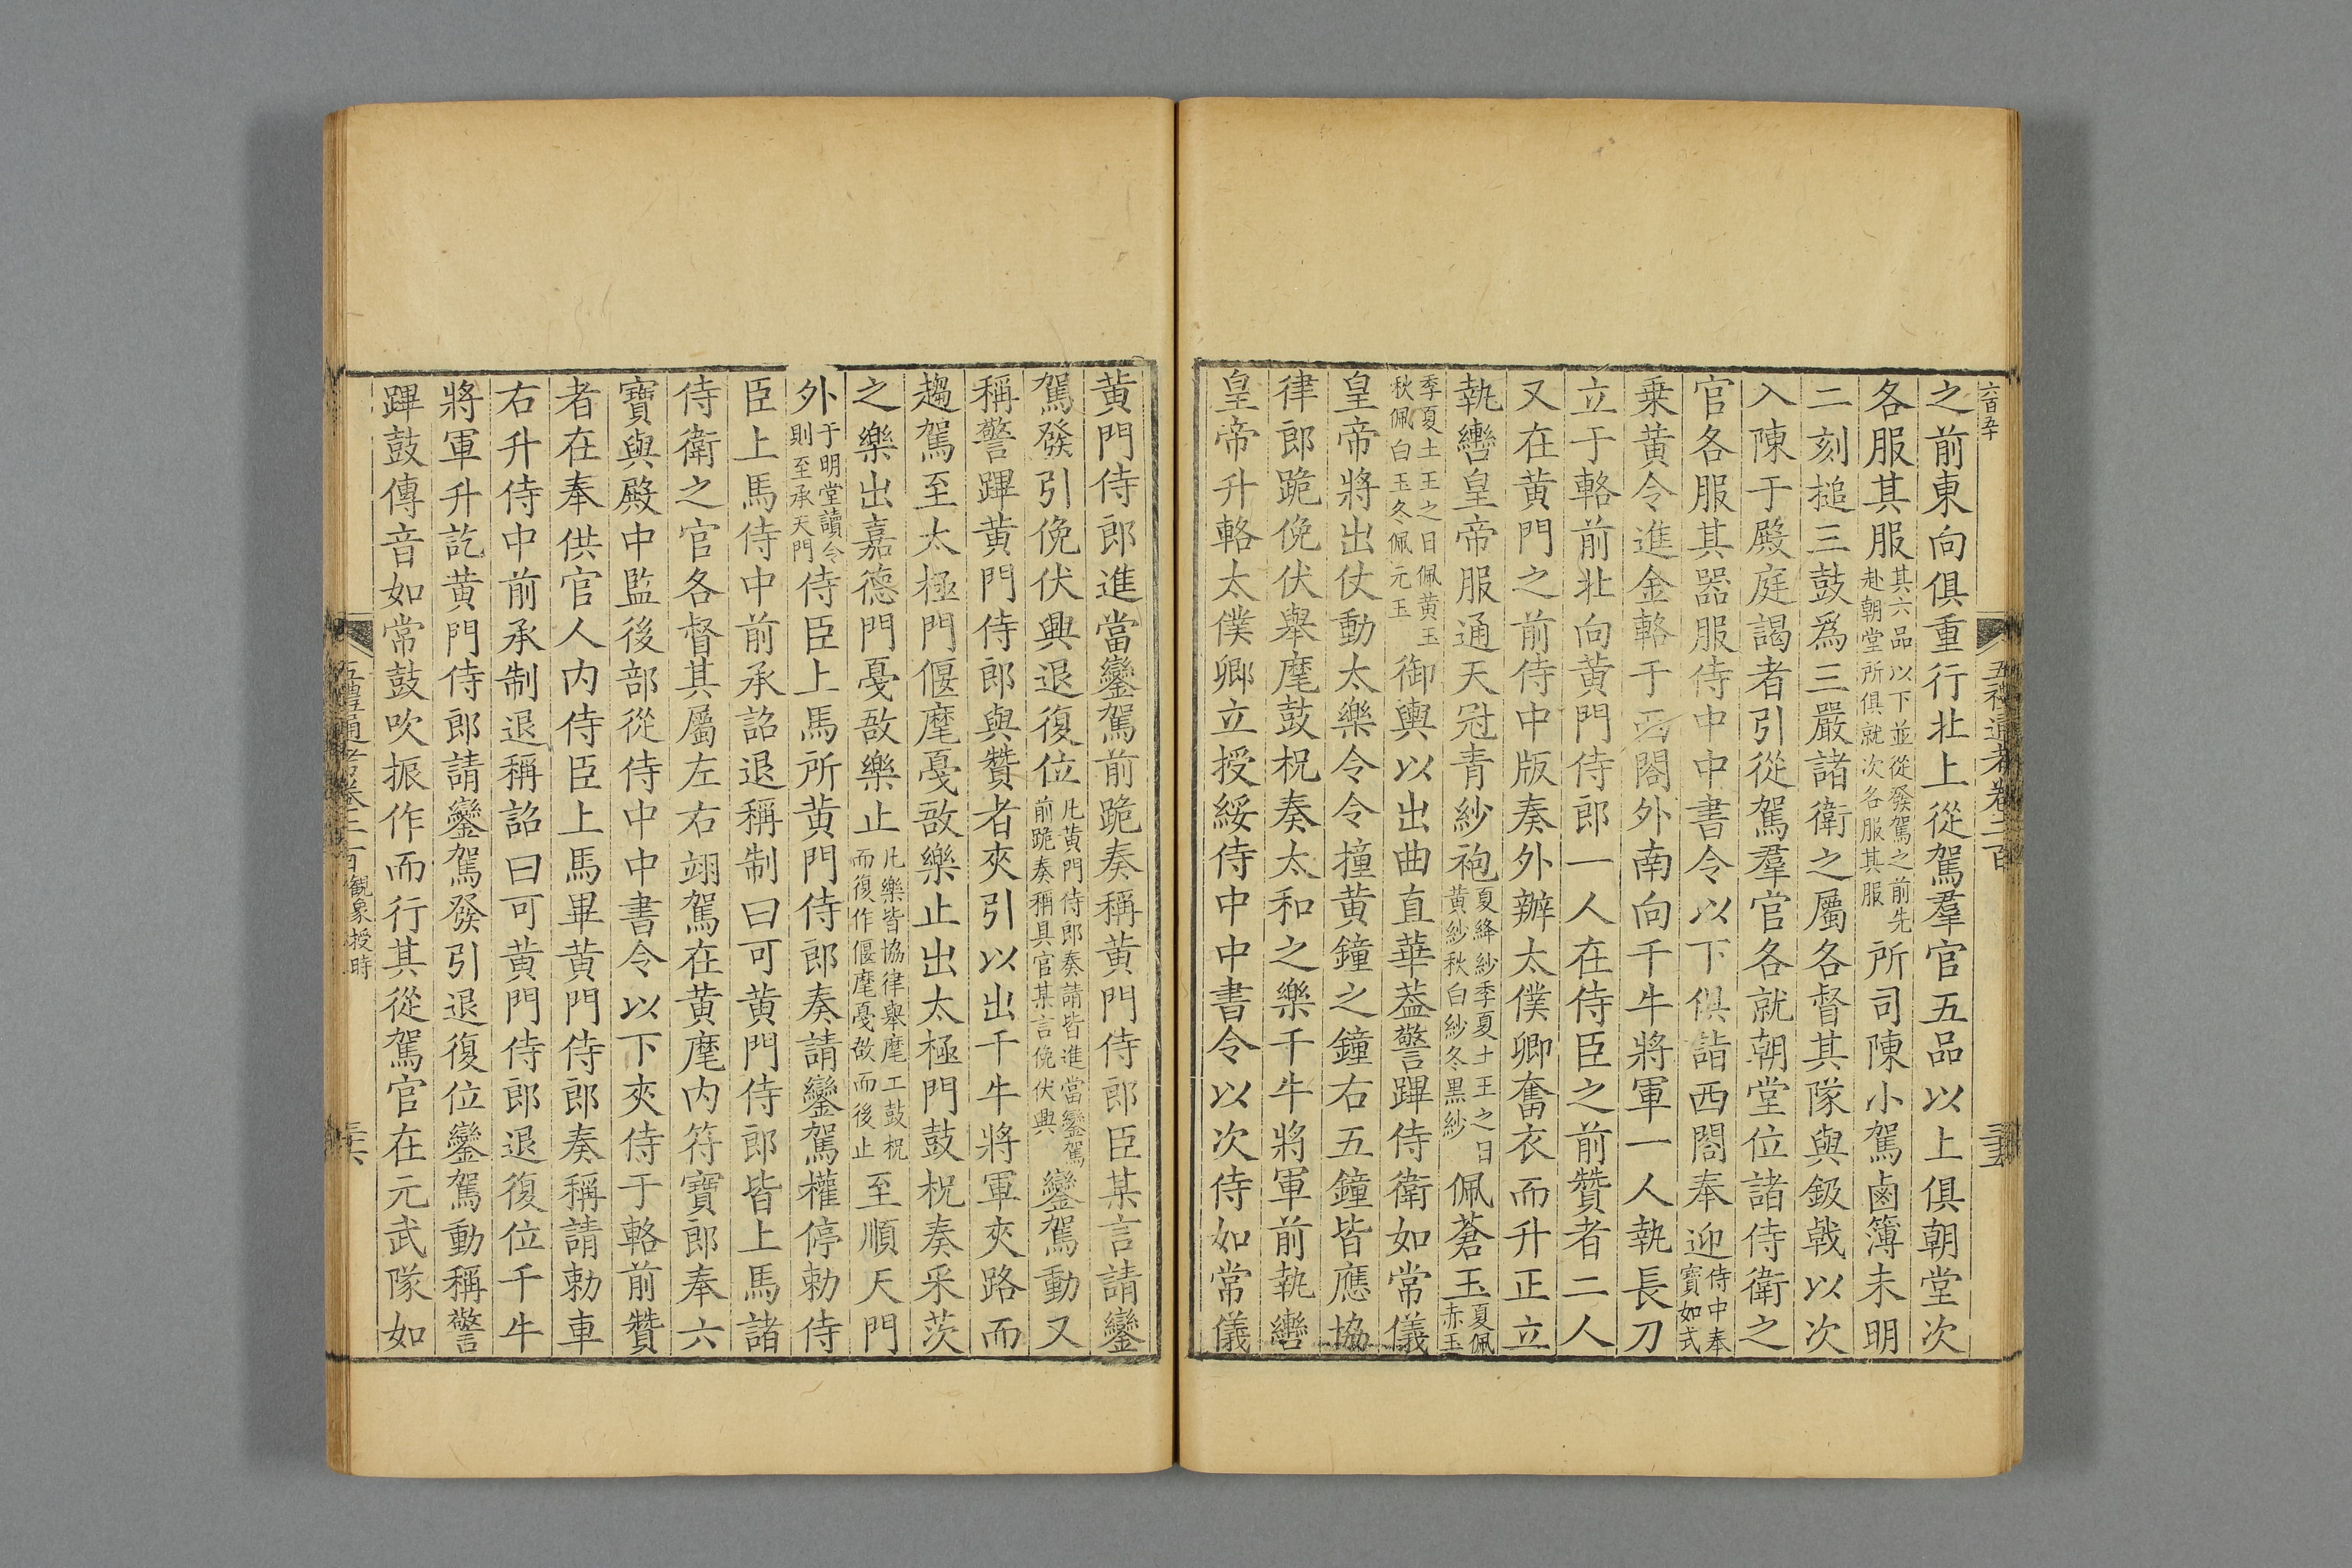 六百五十
五禮通考卷二百
之前東向俱重行北上從駕羣官五品以上俱朝堂次
各服其服其六品以下並從發駕之前先赴朝堂所俱就次各服其服所司陳小駕鹵簿未明
二刻搥三鼓爲三嚴諸衛之屬各督其隊與鈒戟以次
入陳于殿庭謁者引從駕羣官各就朝堂位諸侍衛之
官各服其器服侍中中書令以下俱詣西閤奉迎侍中奉寶如式
乗黃令進金輅于西閤外南向千牛將軍一人執長刀
立于輅前北向黃門侍郎一人在侍臣之前贊者二人
又在黃門之前侍中版奏外辦太僕卿奮衣而升正立
執轡皇帝服通天冠青紗袍夏絳紗季夏土王之日黃紗秋白紗冬黑紗佩蒼玉夏佩赤玉
季夏土王之日佩黃玉秋佩白玉冬佩元玉御輿以出曲直華葢警蹕侍衛如常儀
皇帝將出仗動太樂令令撞黃鐘之鐘右五鐘皆應協
律郎跪俛伏舉麾鼓柷奏太和之樂千牛將軍前執轡
皇帝升輅太僕卿立授綏侍中中書令以次侍如常儀
黃門侍郎進當鑾駕前跪奏稱黃門侍郎臣某言請鑾
駕發引俛伏興退復位凡黃門侍郎奏請皆進當鑾駕前跪奏稱具官某言俛伏興鑾駕動又
稱警蹕黃門侍郎與贊者夾引以出千牛將軍夾路而
趨駕至太極門偃麾戞敔樂止出太極門鼓柷奏采茨
之樂出嘉德門戞敔樂止凡樂皆協律舉麾工鼓柷而復作偃麾戞敔而後止至順天門
外于明堂讀令則至承天門侍臣上馬所黃門侍郎奏請鑾駕權停勅侍
臣上馬侍中前承詔退稱制曰可黃門侍郎皆上馬諸
侍衛之官各督其屬左右翊駕在黃麾內符寶郎奉六
寶與殿中監後部從侍中中書令以下夾侍于輅前贊
者在奉供官人內侍臣上馬畢黃門侍郎奏稱請勅車
右升侍中前承制退稱詔曰可黃門侍郎退復位千牛
將軍升訖黃門侍郎請鑾駕發引退復位鑾駕動稱警
蹕鼓傳音如常鼓吹振作而行其從駕官在元武隊如
五禮通考卷二百觀象授時